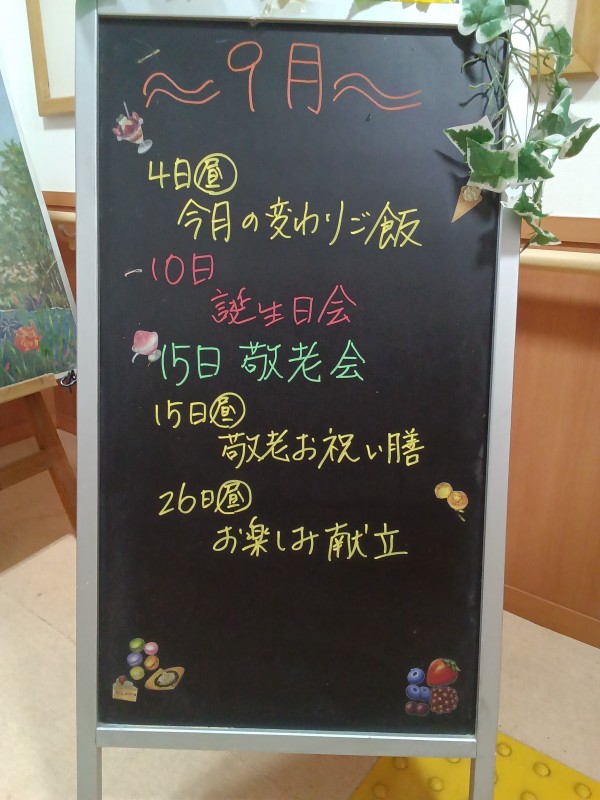 〜9月〜
4日昼
今月の変わりご飯
10日
誕生日会
15日 敬老会
15日昼
敬老お祝い膳
26日昼
お楽しみ献立